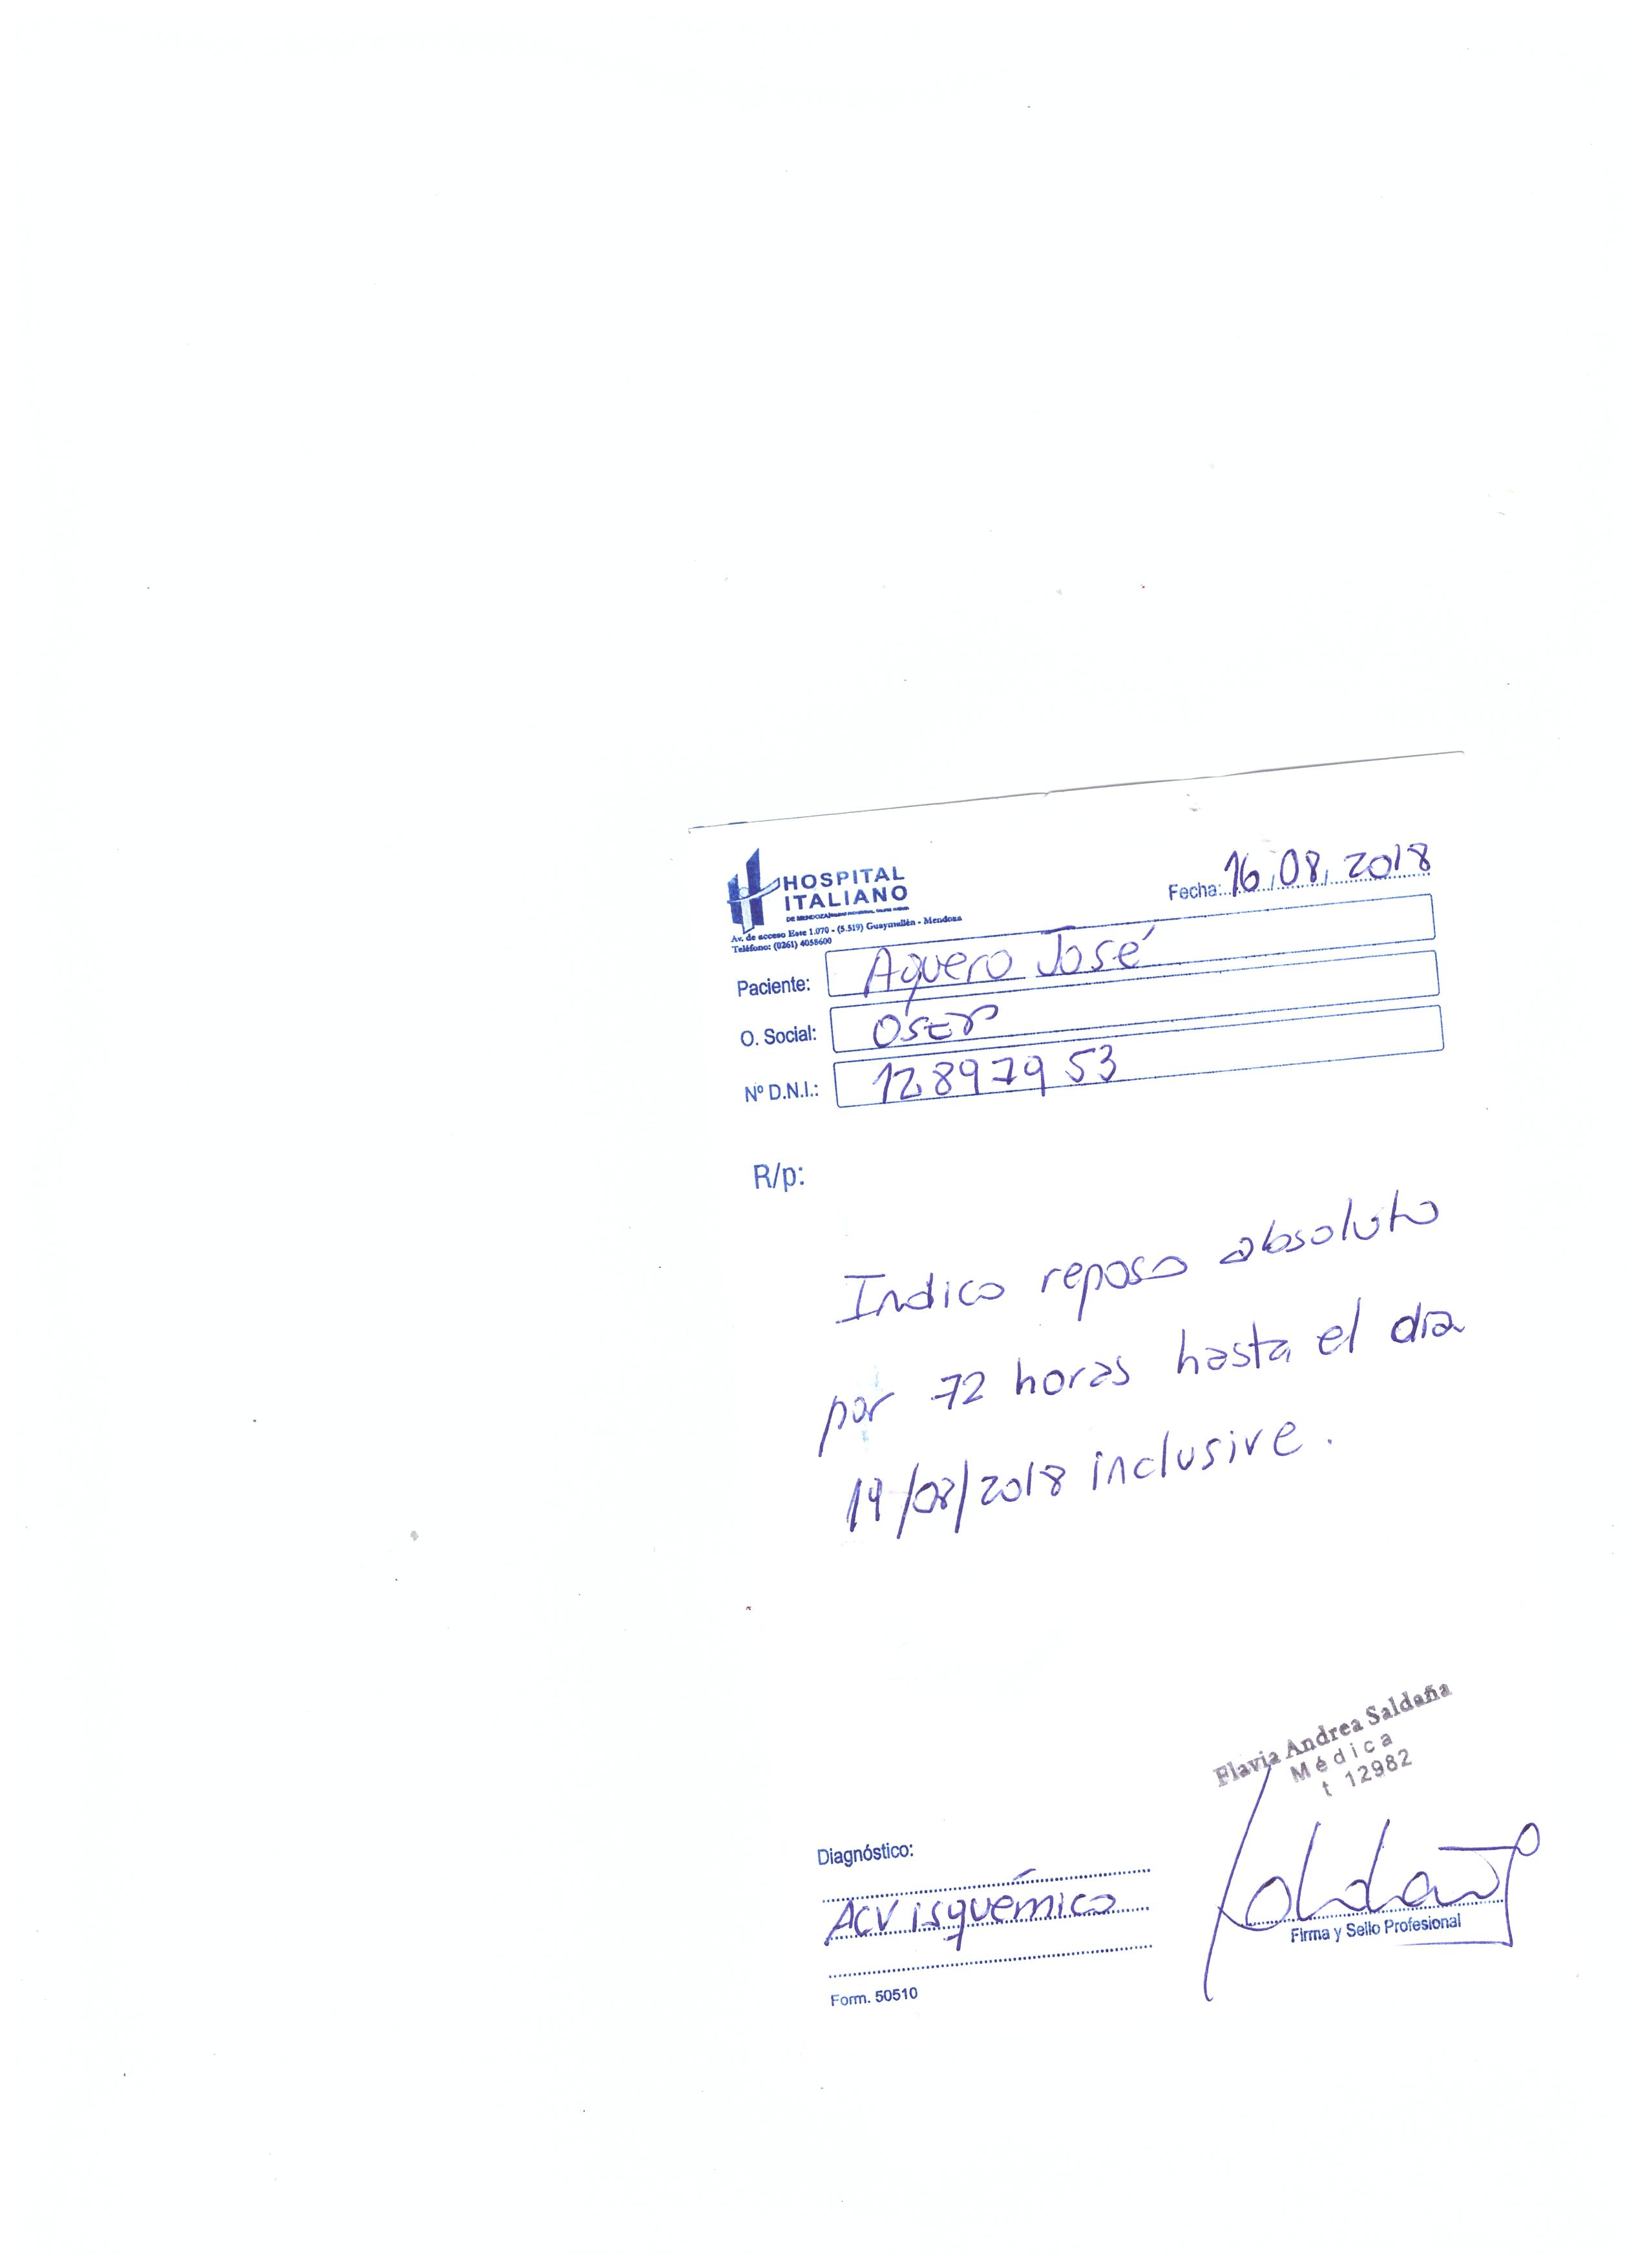 HOSPITAL
ITALIANO
Av. de acceso Este 1.070 - (5.519) Guaymallén - Mendoza
Teléfono: (0261) 4058600
Fecha: 16,08, 2018
Paciente: Aguero José
O. Social: Osep
Nº D.N.I.: 12897953
R/p:
Indico reposo absoluto
por 72 horas hasta el día
19/08/2018 inclusive.
Flavia Andrea Saldaña
Médica
t 12982
Diagnóstico:
ACV isquémico
Firma y Sello Profesional
Form. 50510